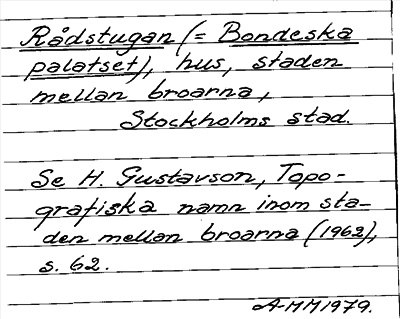 Rådstugan (= Bondeska
palatset), hus, staden
mellan broarna,
Stockholms stad.
Se H. Gustavson, Topo-
grafiska namn inom sta-
den mellan broarna (1962),
s. 62.
A-MM1979.